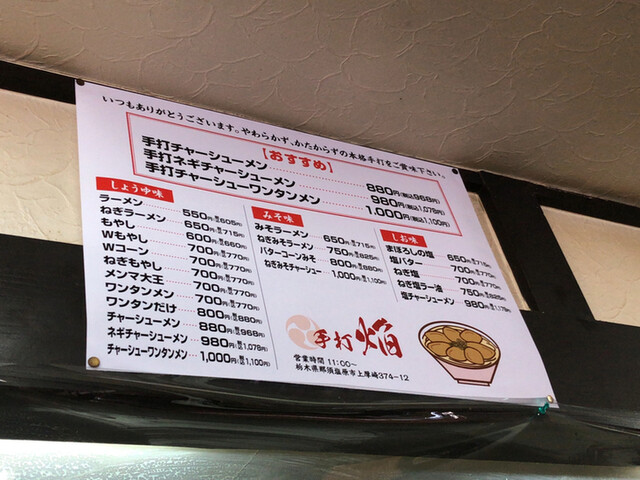 いつもありがとうございます。やわらかず、かたからずの本格手打をご賞味下さい。
【おすすめ】
手打チャーシューメン 880円(税込968円)
手打ネギチャーシューメン 980円(税込1,078円)
手打チャーシューワンタンメン 1,000円(税込1,100円)
しょうゆ味
ラーメン 550円(税込605円)
ねぎラーメン 650円(税込715円)
もやし 600円(税込660円)
Wもやし 700円(税込770円)
Wコーン 700円(税込770円)
ねぎもやし 700円(税込770円)
メンマ大王 700円(税込770円)
ワンタンメン 700円(税込770円)
ワンタンだけ 800円(税込880円)
チャーシューメン 880円(税込968円)
ネギチャーシューメン 980円(税込1,078円)
チャーシューワンタンメン 1,000円(税込1,100円)
みそ味
みそラーメン 650円(税込715円)
ねぎみそラーメン 750円(税込825円)
バターコーンみそ 800円(税込880円)
ねぎみそチャーシュー 1,000円(税込1,100円)
しお味
まぼろしの塩 650円(税込715円)
塩バター 700円(税込770円)
ねぎ塩 700円(税込770円)
ねぎ塩ラー油 750円(税込825円)
塩チャーシューメン 980円(税込1,078円)
手打 焔
営業時間 11:00～
栃木県那須塩原市上厚崎374-12